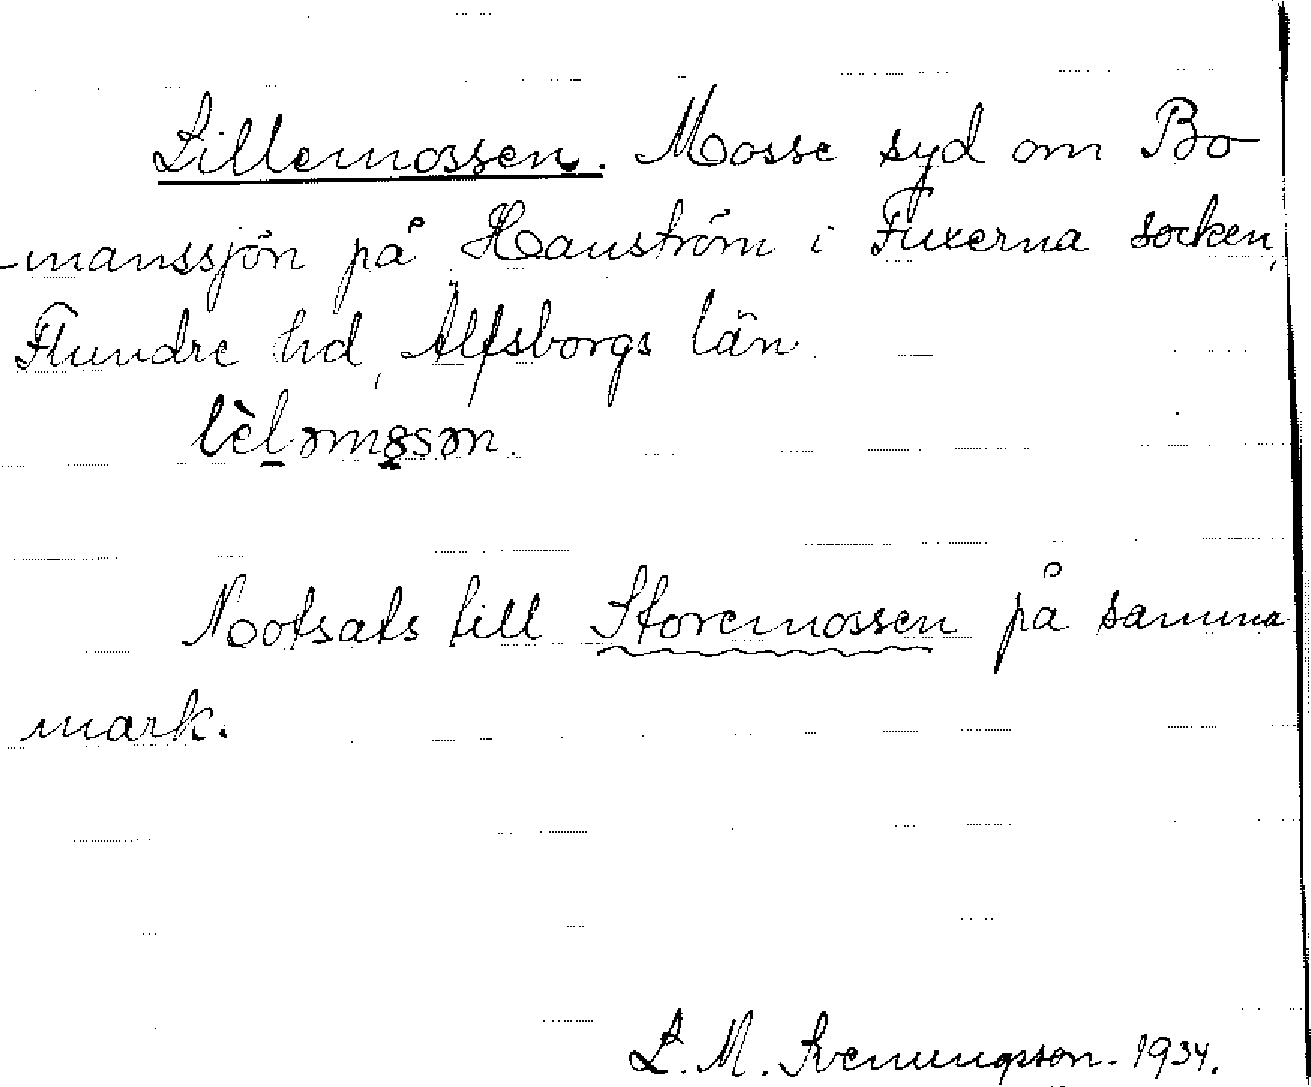 Lillemossen. Mosse syd om Bo
manssjön på Hanström i Fuxerna socken,
Flundre hd, Älfsborgs län.
lèləmosən.
Motsats till Storemossen på samma
mark.
L. M. Svenungsson. 1934.